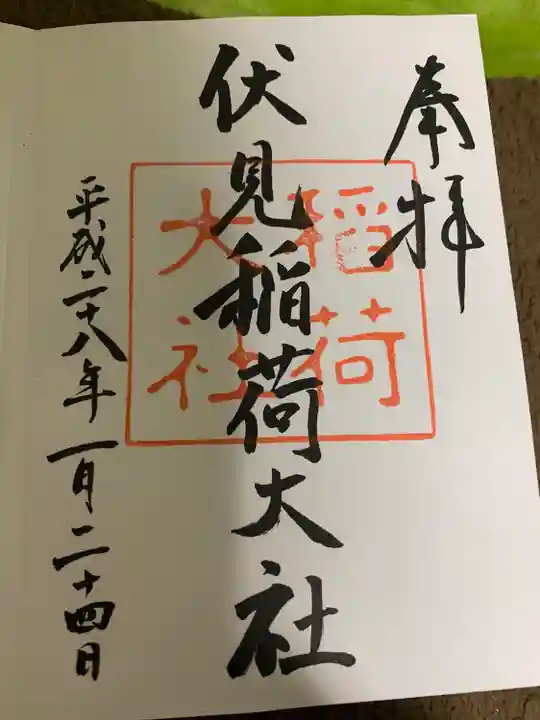 奉拝
伏見稲荷大社
稲荷
大社
平成二十八年一月二十四日